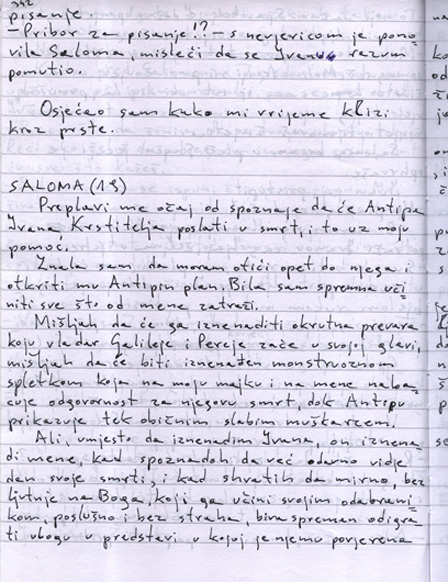 342
pisanje.
– Pribor za pisanje!? – s nevjericom je pono-
vila Saloma, misleći da se Ivanu razum
pomutio.
Osjećao sam kako mi vrijeme klizi
kroz prste.
SALOMA (18)
Preplavi me očaj od spoznaje da će Antipa
Ivana Krstitelja poslati u smrt, i to uz moju
pomoć.
Znala sam da moram otići opet do njega i
otkriti mu Antipin plan. Bila sam spremna uči-
niti sve što od mene zatraži.
Mišljah da će ga iznenaditi okrutna prevara
koju vladar Galileje i Pereje zače u svojoj glavi,
mišljah da će biti iznenađen monstruoznom
spletkom koja na moju majku i na mene naba-
cuje odgovornost za njegovu smrt, dok Antipu
prikazuje tek običnim slabim muškarcem.
Ali, umjesto da iznenadim Ivana, on iznena-
di mene, kad spoznadoh da već odavno vidje
dan svoje smrti, i kad shvatih da mirno, bez
ljutnje na Boga, koji ga učini svojim odabrani-
kom, poslušno i bez straha, biva spreman odigra-
ti ulogu u predstavi u kojoj je njemu povjerena